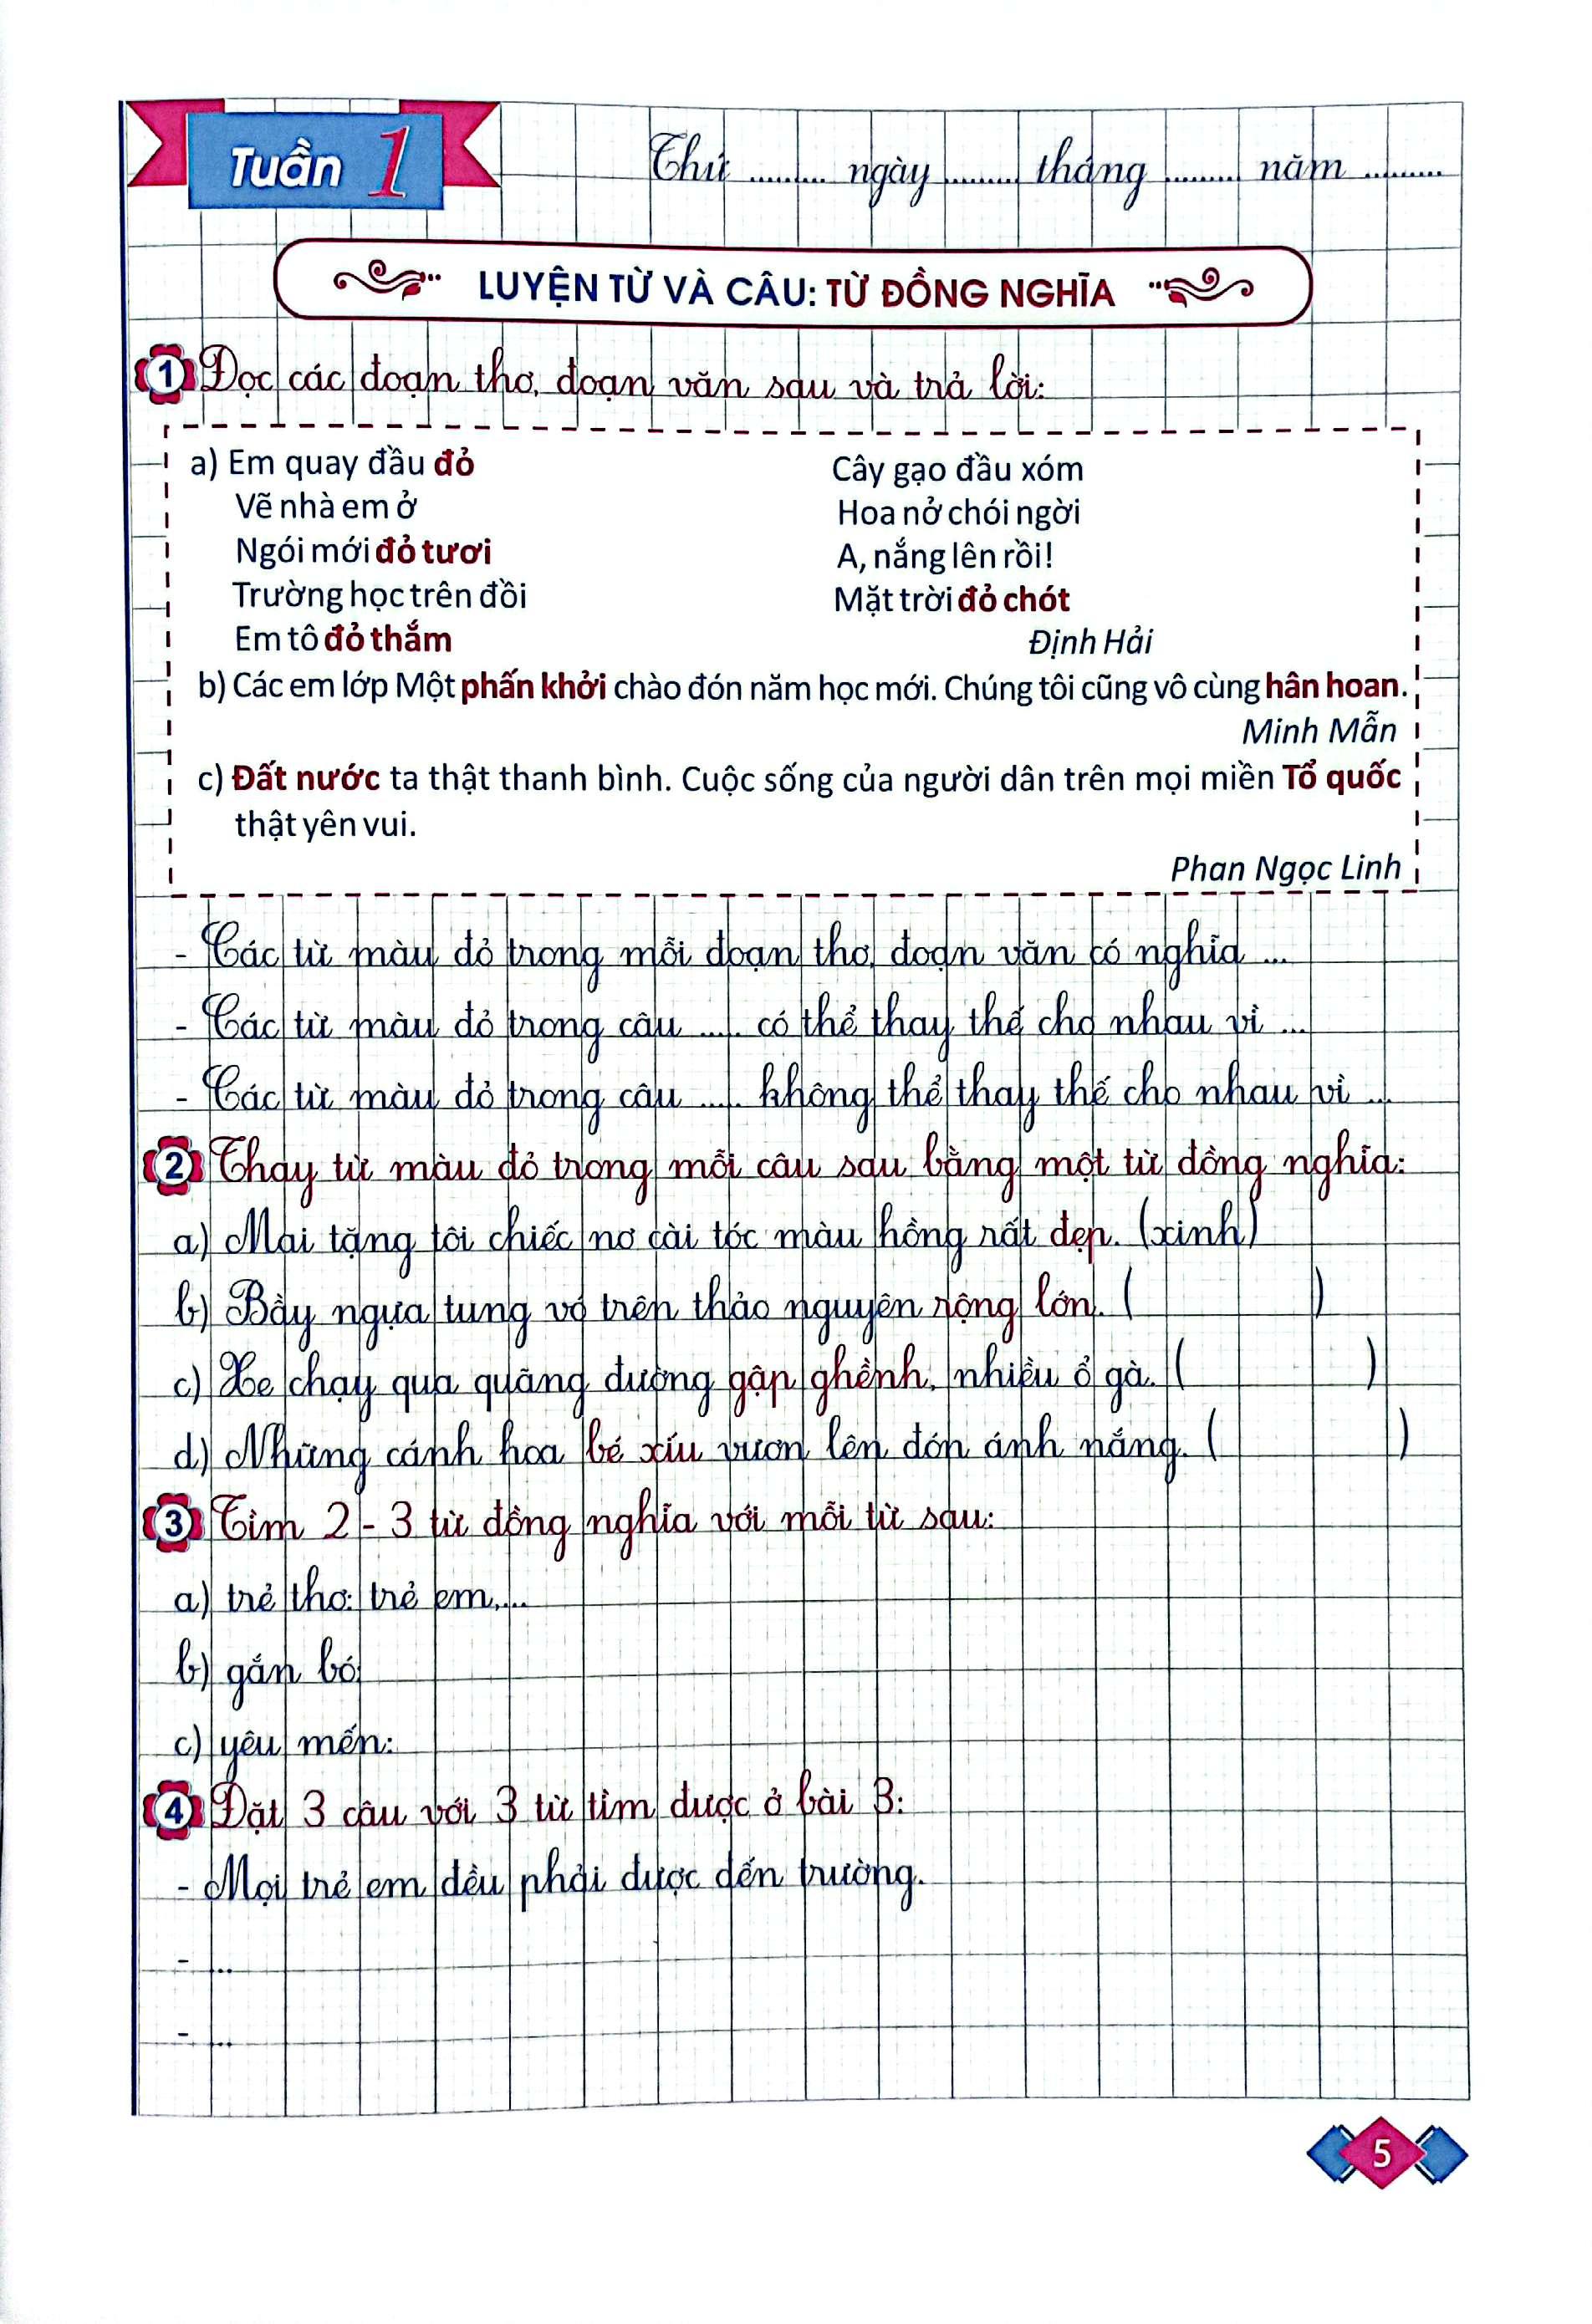 Tuần 1
Thứ ......... ngày ......... tháng ......... năm .........
LUYỆN TỪ VÀ CÂU: TỪ ĐỒNG NGHĨA
1 Đọc các đoạn thơ, đoạn văn sau và trả lời:
a) Em quay đầu đỏ
Vẽ nhà em ở
Ngói mới đỏ tươi
Trường học trên đồi
Em tô đỏ thắm
Cây gạo đầu xóm
Hoa nở chói ngời
A, nắng lên rồi!
Mặt trời đỏ chót
Định Hải
b) Các em lớp Một phấn khởi chào đón năm học mới. Chúng tôi cũng vô cùng hân hoan.
Minh Mẫn
c) Đất nước ta thật thanh bình. Cuộc sống của người dân trên mọi miền Tổ quốc
thật yên vui.
Phan Ngọc Linh
- Các từ màu đỏ trong mỗi đoạn thơ, đoạn văn có nghĩa ...
- Các từ màu đỏ trong câu ..... có thể thay thế cho nhau vì ...
- Các từ màu đỏ trong câu ..... không thể thay thế cho nhau vì ...
2 Thay từ màu đỏ trong mỗi câu sau bằng một từ đồng nghĩa:
a) Mai tặng tôi chiếc nơ cài tóc màu hồng rất đẹp. (xinh)
b) Bầy ngựa tung vó trên thảo nguyên rộng lớn. ( )
c) Xe chạy qua quãng đường gập ghềnh, nhiều ổ gà. ( )
d) Những cánh hoa bé xíu vươn lên đón ánh nắng. ( )
3 Tìm 2 - 3 từ đồng nghĩa với mỗi từ sau:
a) trẻ thơ: trẻ em,...
b) gắn bó:
c) yêu mến:
4 Đặt 3 câu với 3 từ tìm được ở bài 3:
- Mọi trẻ em đều phải được đến trường.
- ...
- ...
5